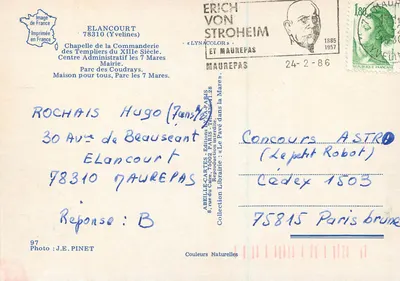 Image
de France
Imprimée
en France
ELANCOURT
78310 (Yvelines)
Chapelle de la Commanderie
des Templiers du XIIIe Siècle.
Centre Administratif les 7 Mares
Mairie.
Parc des Coudrays.
Maison pour tous, Parc les 7 Mares.
ROCHAIS Hugo (7ans
30 Avenue de Beauséant
Elancourt
78310 MAUREPAS
Réponse : B
97
Photo : J.E. PINET
«LYNACOLOR»
ABEILLE-CARTES - Éditions
Collection Librairie : «Le Pavé dans la Mare».
Couleurs Naturelles
ERICH
VON
STROHEIM
1885
1957
ET MAUREPAS
MAUREPAS 24-2-86
1,80
Concours ASTRO
(Le petit Robot)
Cédex 1503
75815 Paris brune